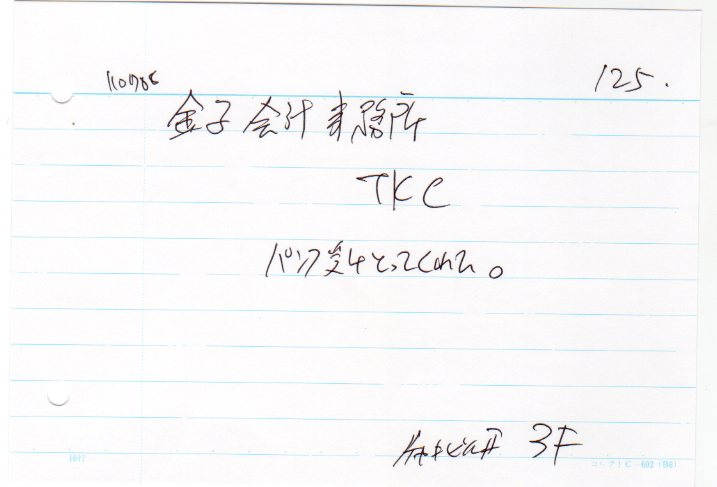 110706
125.
金子会計事務所
TKC
パンフ受けとってくれた。
3F
10行
コレクト C-602 (B6)